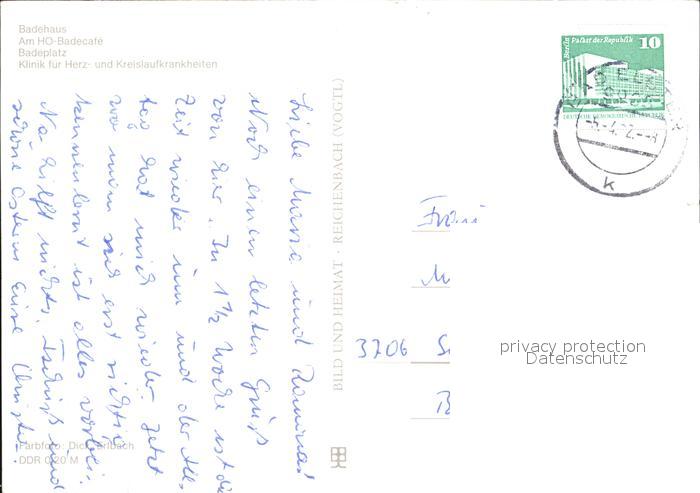 Badehaus
Am HO-Badecafé
Badeplatz
Klinik für Herz- und Kreislaufkrankheiten
Liebe und
Noch einen letzten Gruß
von hier. In 1½ Woche ist die
Zeit wieder um und der All-
tag hat mich wieder. Jetzt
wo man sich erst richtig
kennenlernt ist alles vorbei.
Na hilft nichts. Tschüß und
schöne Ostern Eure Christa
Farbfoto: Darlbach
DDR 0,20 M
BILD UND HEIMAT · REICHENBACH (VOGTL)
Berlin Palast der Republik 10
DEUTSCHE DEMOKRATISCHE
k
Frau
M
3706 S
B
privacy protection
Datenschutz